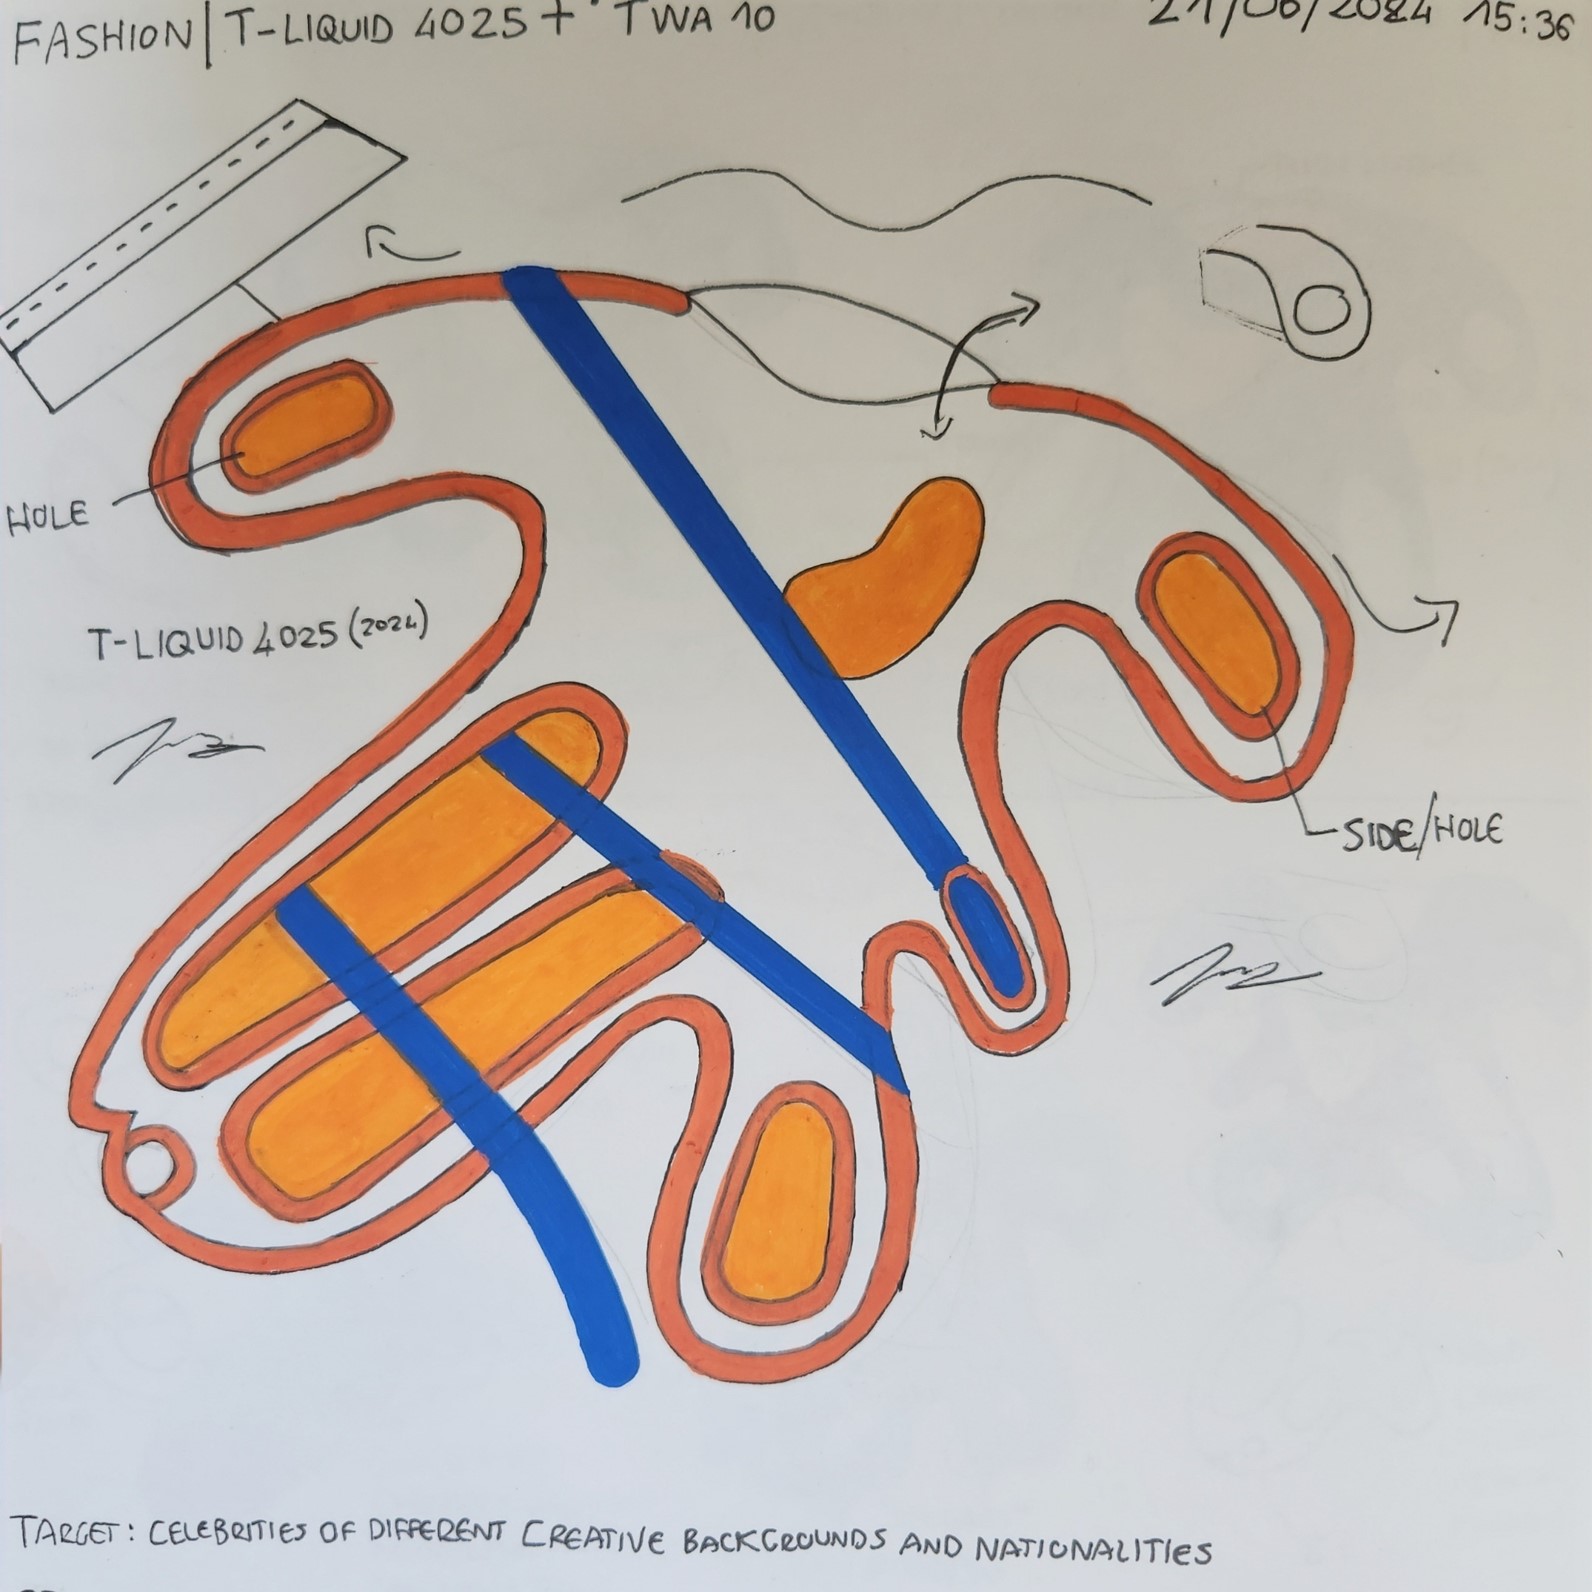 FASHION | T-LIQUID 4025 + TWA 10
21/06/2024 15:36
HOLE
T-LIQUID 4025 (2024)
SIDE/HOLE
TARGET: CELEBRITIES OF DIFFERENT CREATIVE BACKGROUNDS AND NATIONALITIES